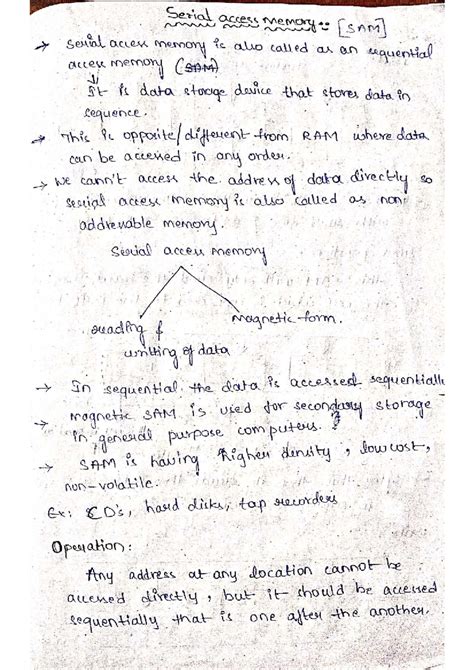 Serial access memory :- [SAM]
→ Serial access memory is also called as an sequential
access memory (SAM)
↓
It is data storage device that stores data in
sequence.
→ This is opposite/different from RAM where data
can be accessed in any order.
→ We cann't access the address of data directly so
serial access memory is also called as non
addressable memory.
Serial access memory
reading &
writting of data
magnetic form.
→ In sequential the data is accessed sequentially
→ magnetic SAM is used for secondary storage
in general purpose computers.
→ SAM is having higher density, low cost,
non-volatile.
Ex: CD's, hard disks, tap recorders
Operation:
Any address at any location cannot be
accessed directly, but it should be accessed
sequentially that is one after the another.